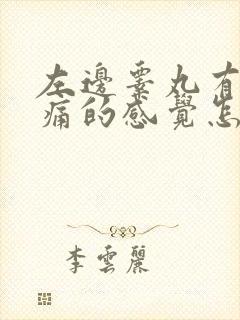 左邊睪丸有
痛的感覺怎
李雲麗